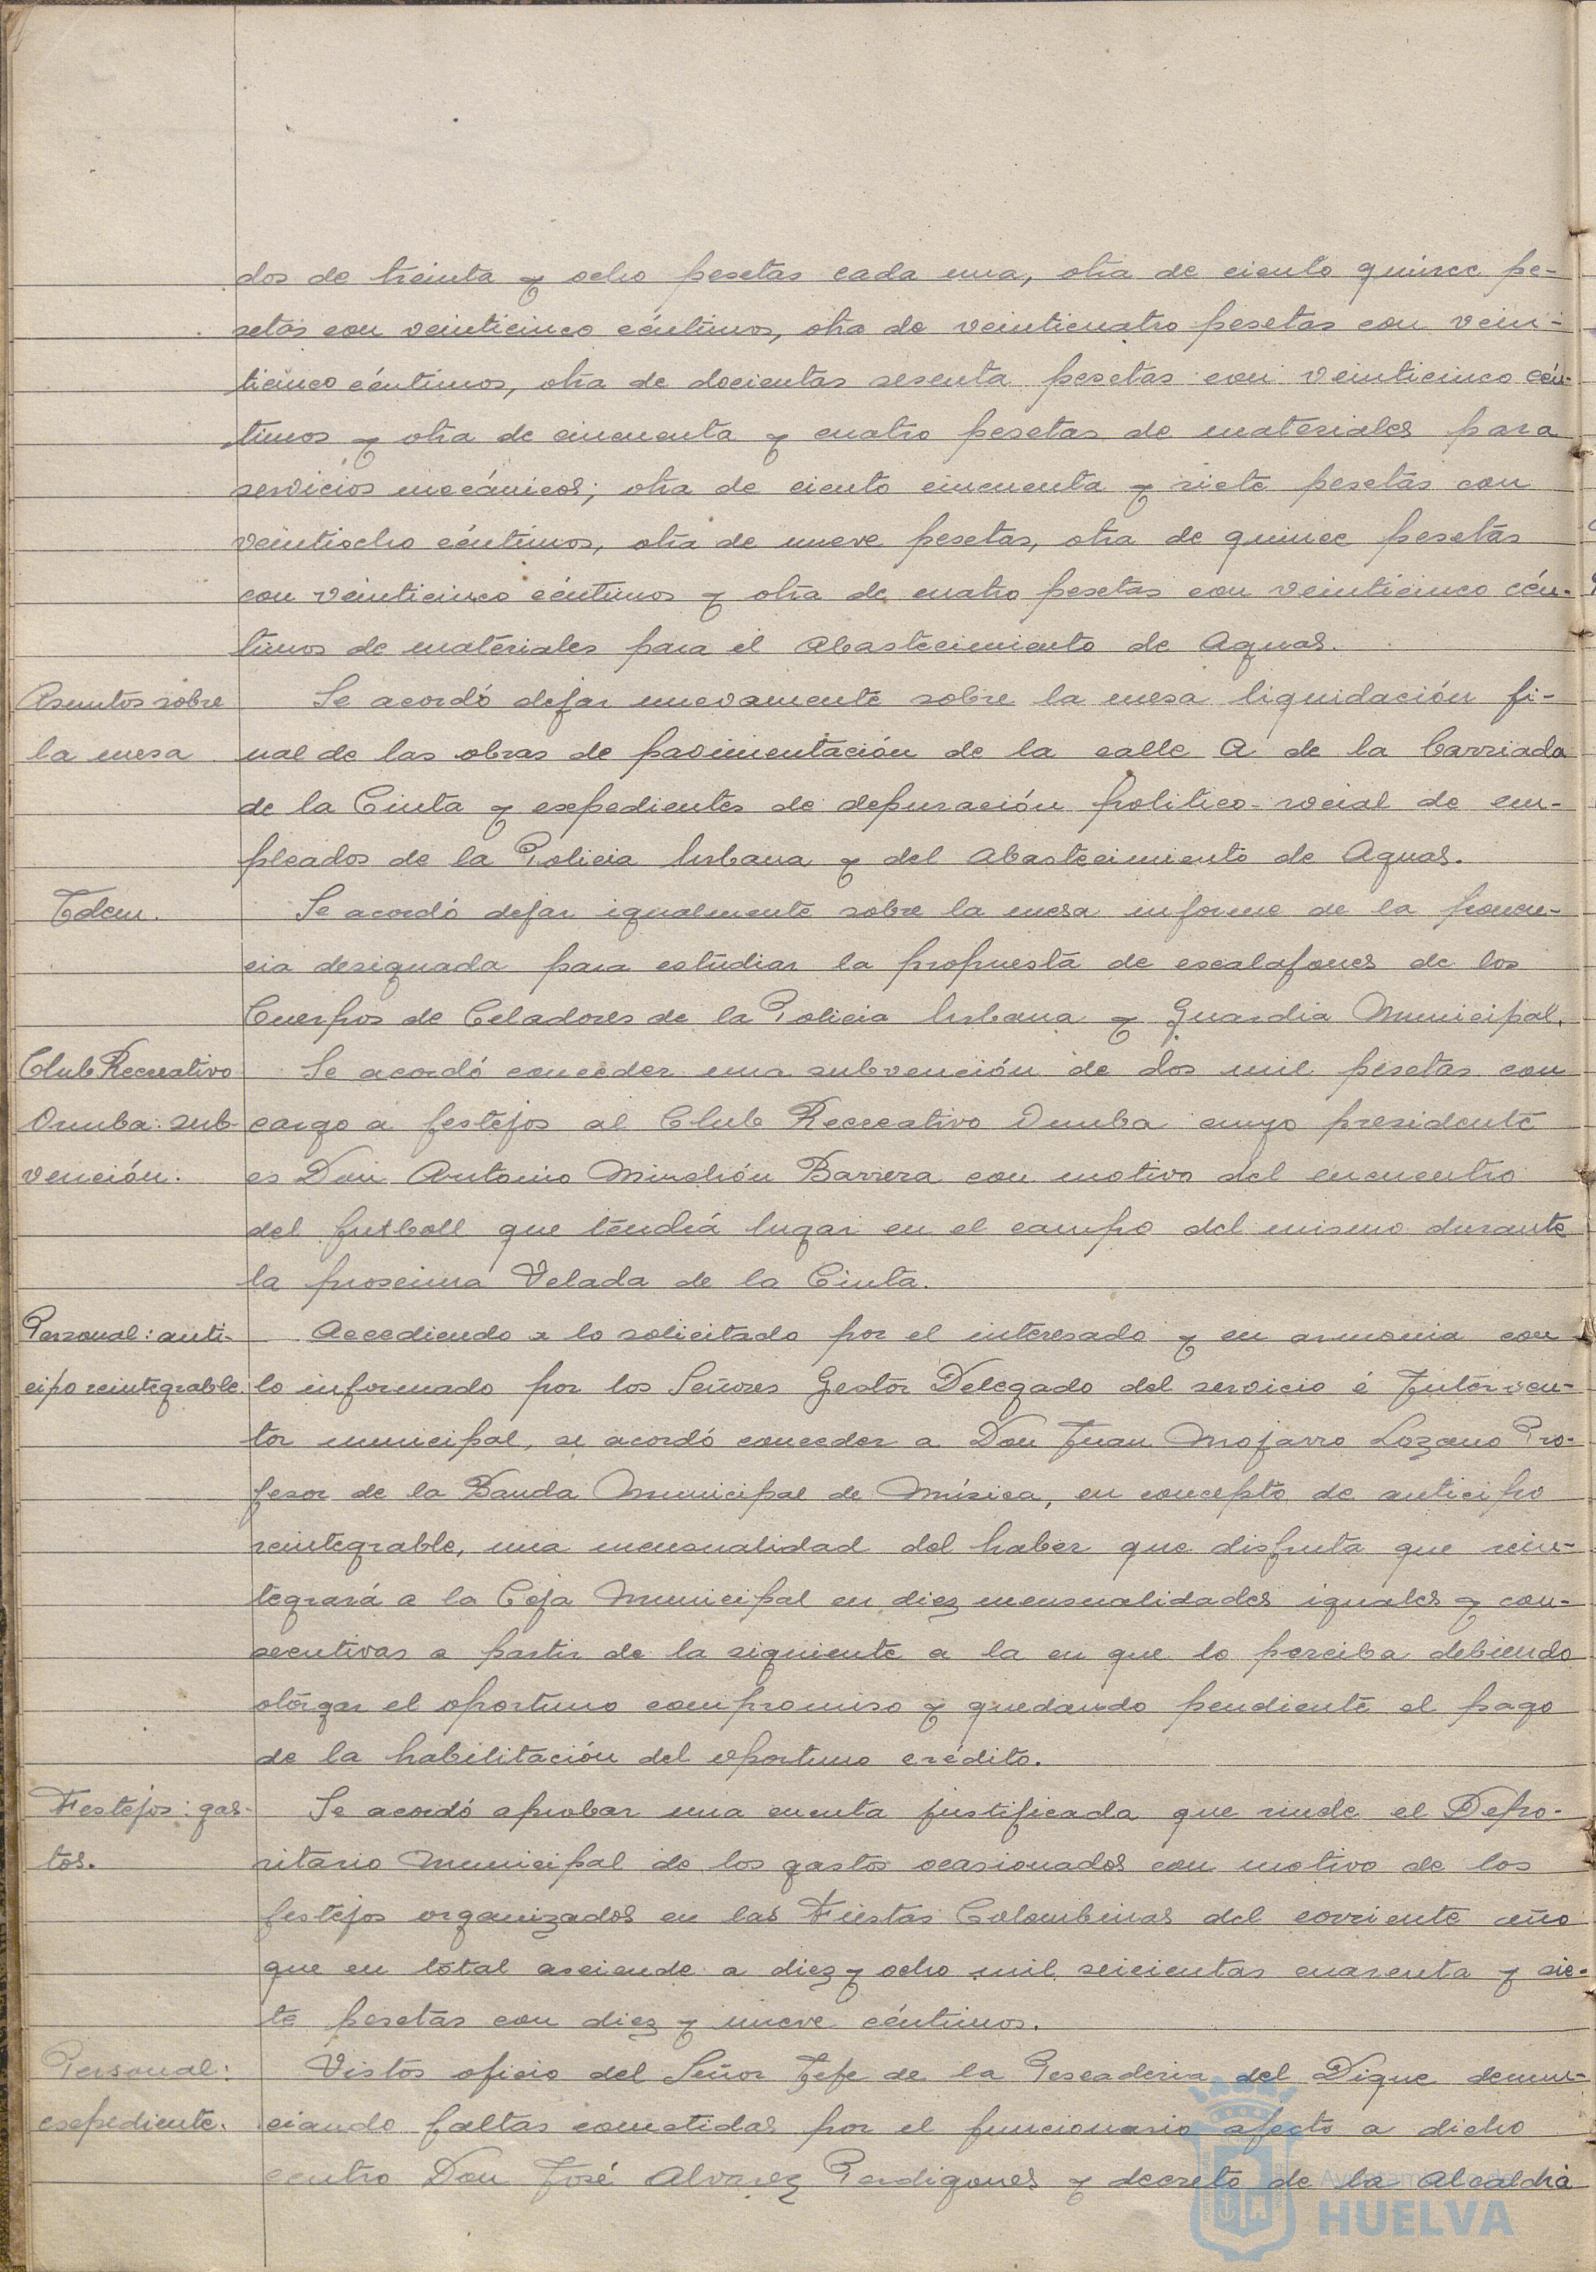 dos de treinta y ocho pesetas cada una, otra de ciento quince pe-
setas con veinticinco céntimos, otra de veinticuatro pesetas con vein-
ticinco céntimos, otra de docientas sesenta pesetas con veinticinco cén-
timos y otra de cincuenta y cuatro pesetas de materiales para
servicios mecánicos; otra de ciento cincuenta y siete pesetas con
veintiocho céntimos, otra de nueve pesetas, otra de quince pesetas
con veinticinco céntimos y otra de cuatro pesetas con veinticinco cén-
timos de materiales para el Abastecimiento de Aguas.
Asuntos sobre
la mesa
Se acordó dejar nuevamente sobre la mesa liquidación fi-
nal de las obras de pavimentación de la calle A de la barriada
de la Cinta y espedientes de depuración politico-social de em-
pleados de la Policia Urbana y del Abastecimiento de Aguas.
Idem.
Se acordó dejar igualmente sobre la mesa informe de la ponen-
cia designada para estudiar la propuesta de escalafones de los
Cuerpos de Celadores de la Policia Urbana y Guardia Municipal.
Club Recreativo
Onuba: sub-
vención.
Se acordó conceder una subvención de dos mil pesetas con
cargo a festejos al Club Recreativo Onuba cuyo presidente
es Don Antonio Minchón Barrera con motivo del encuentro
del futboll que tendrá lugar en el campo del mismo durante
la prosima Velada de la Cinta.
Personal: anti-
cipo reintegrable.
Accediendo a lo solicitado por el interesado y en armonia con
lo informado por los Señores Gestor Delegado del servicio é Interven-
tor municipal, se acordó conceder a Don Juan Mojarro Lozano Pro-
fesor de la Banda Municipal de Música, en concepto de anticipo
reintegrable, una mensualidad del haber que disfruta que rein-
tegrará a la Caja Municipal en diez mensualidades iguales y con-
secutivas a partir de la siguiente a la en que lo perciba debiendo
otorgar el oportuno compromiso y quedando pendiente el pago
de la habilitación del oportuno crédito.
Festejos: gas-
tos.
Se acordó aprobar una cuenta justificada que rinde el Depo-
sitario Municipal de los gastos ocasionados con motivo de los
festejos organizados en las Fiestas Colombinas del corriente año
que en total asciende a diez y ocho mil seicientas cuarenta y sie-
te pesetas con diez y nueve céntimos.
Personal:
espediente.
Vistos oficio del Señor Jefe de la Pescaderia del Dique denun-
ciando faltas cometidas por el funcionario afecto a dicho
centro Don José Alvarez Perdigones y decreto de la Alcaldia
Ayuntamiento de
HUELVA